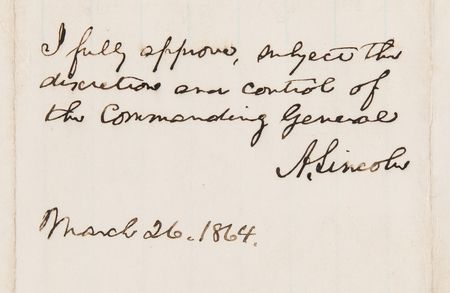 I fully approve, subject the
discretion and control of
the Commanding General
A. Lincoln
March 26. 1864.